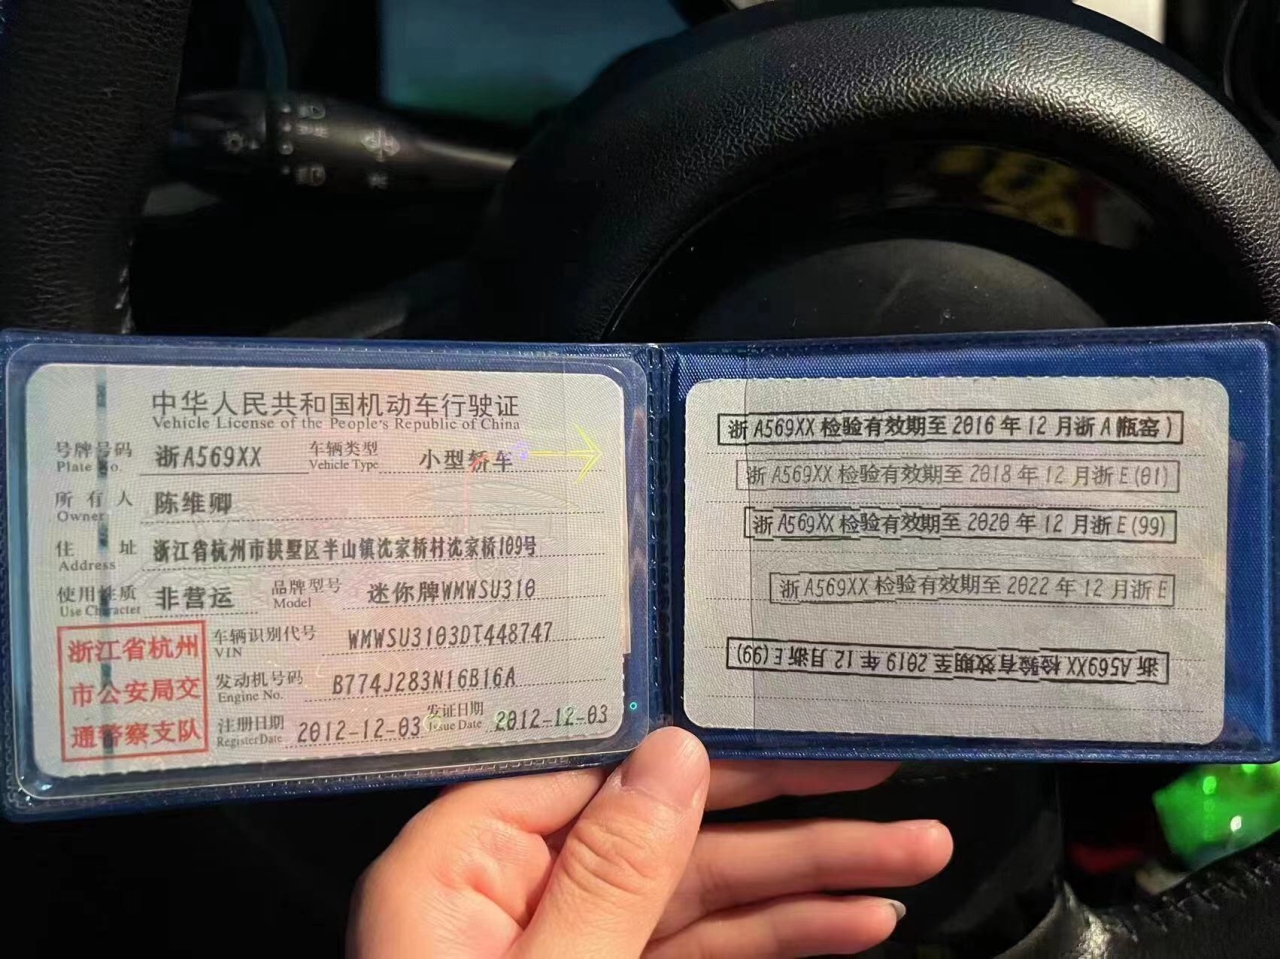 中华人民共和国机动车行驶证
Vehicle License of the People's Republic of China
号牌号码 浙A569XX 车辆类型 小型轿车
Plate No. Vehicle Type
所有人 陈维卿
Owner
住址 浙江省杭州市拱墅区半山镇沈家桥村沈家桥109号
Address
使用性质 非营运 品牌型号 迷你牌WMWSU310
Use Character Model
浙江省杭州
市公安局交
通警察支队
车辆识别代号 WMWSU3103DT448747
VIN
发动机号码 B774J283N16B16A
Engine No.
注册日期 2012-12-03 发证日期 2012-12-03
Register Date Issue Date
浙A569XX检验有效期至2016年12月浙A(瓶窑)
浙A569XX检验有效期至2018年12月浙E(01)
浙A569XX检验有效期至2020年12月浙E(99)
浙A569XX检验有效期至2022年12月浙E
浙A569XX检验有效期至2019年12月浙E(99)